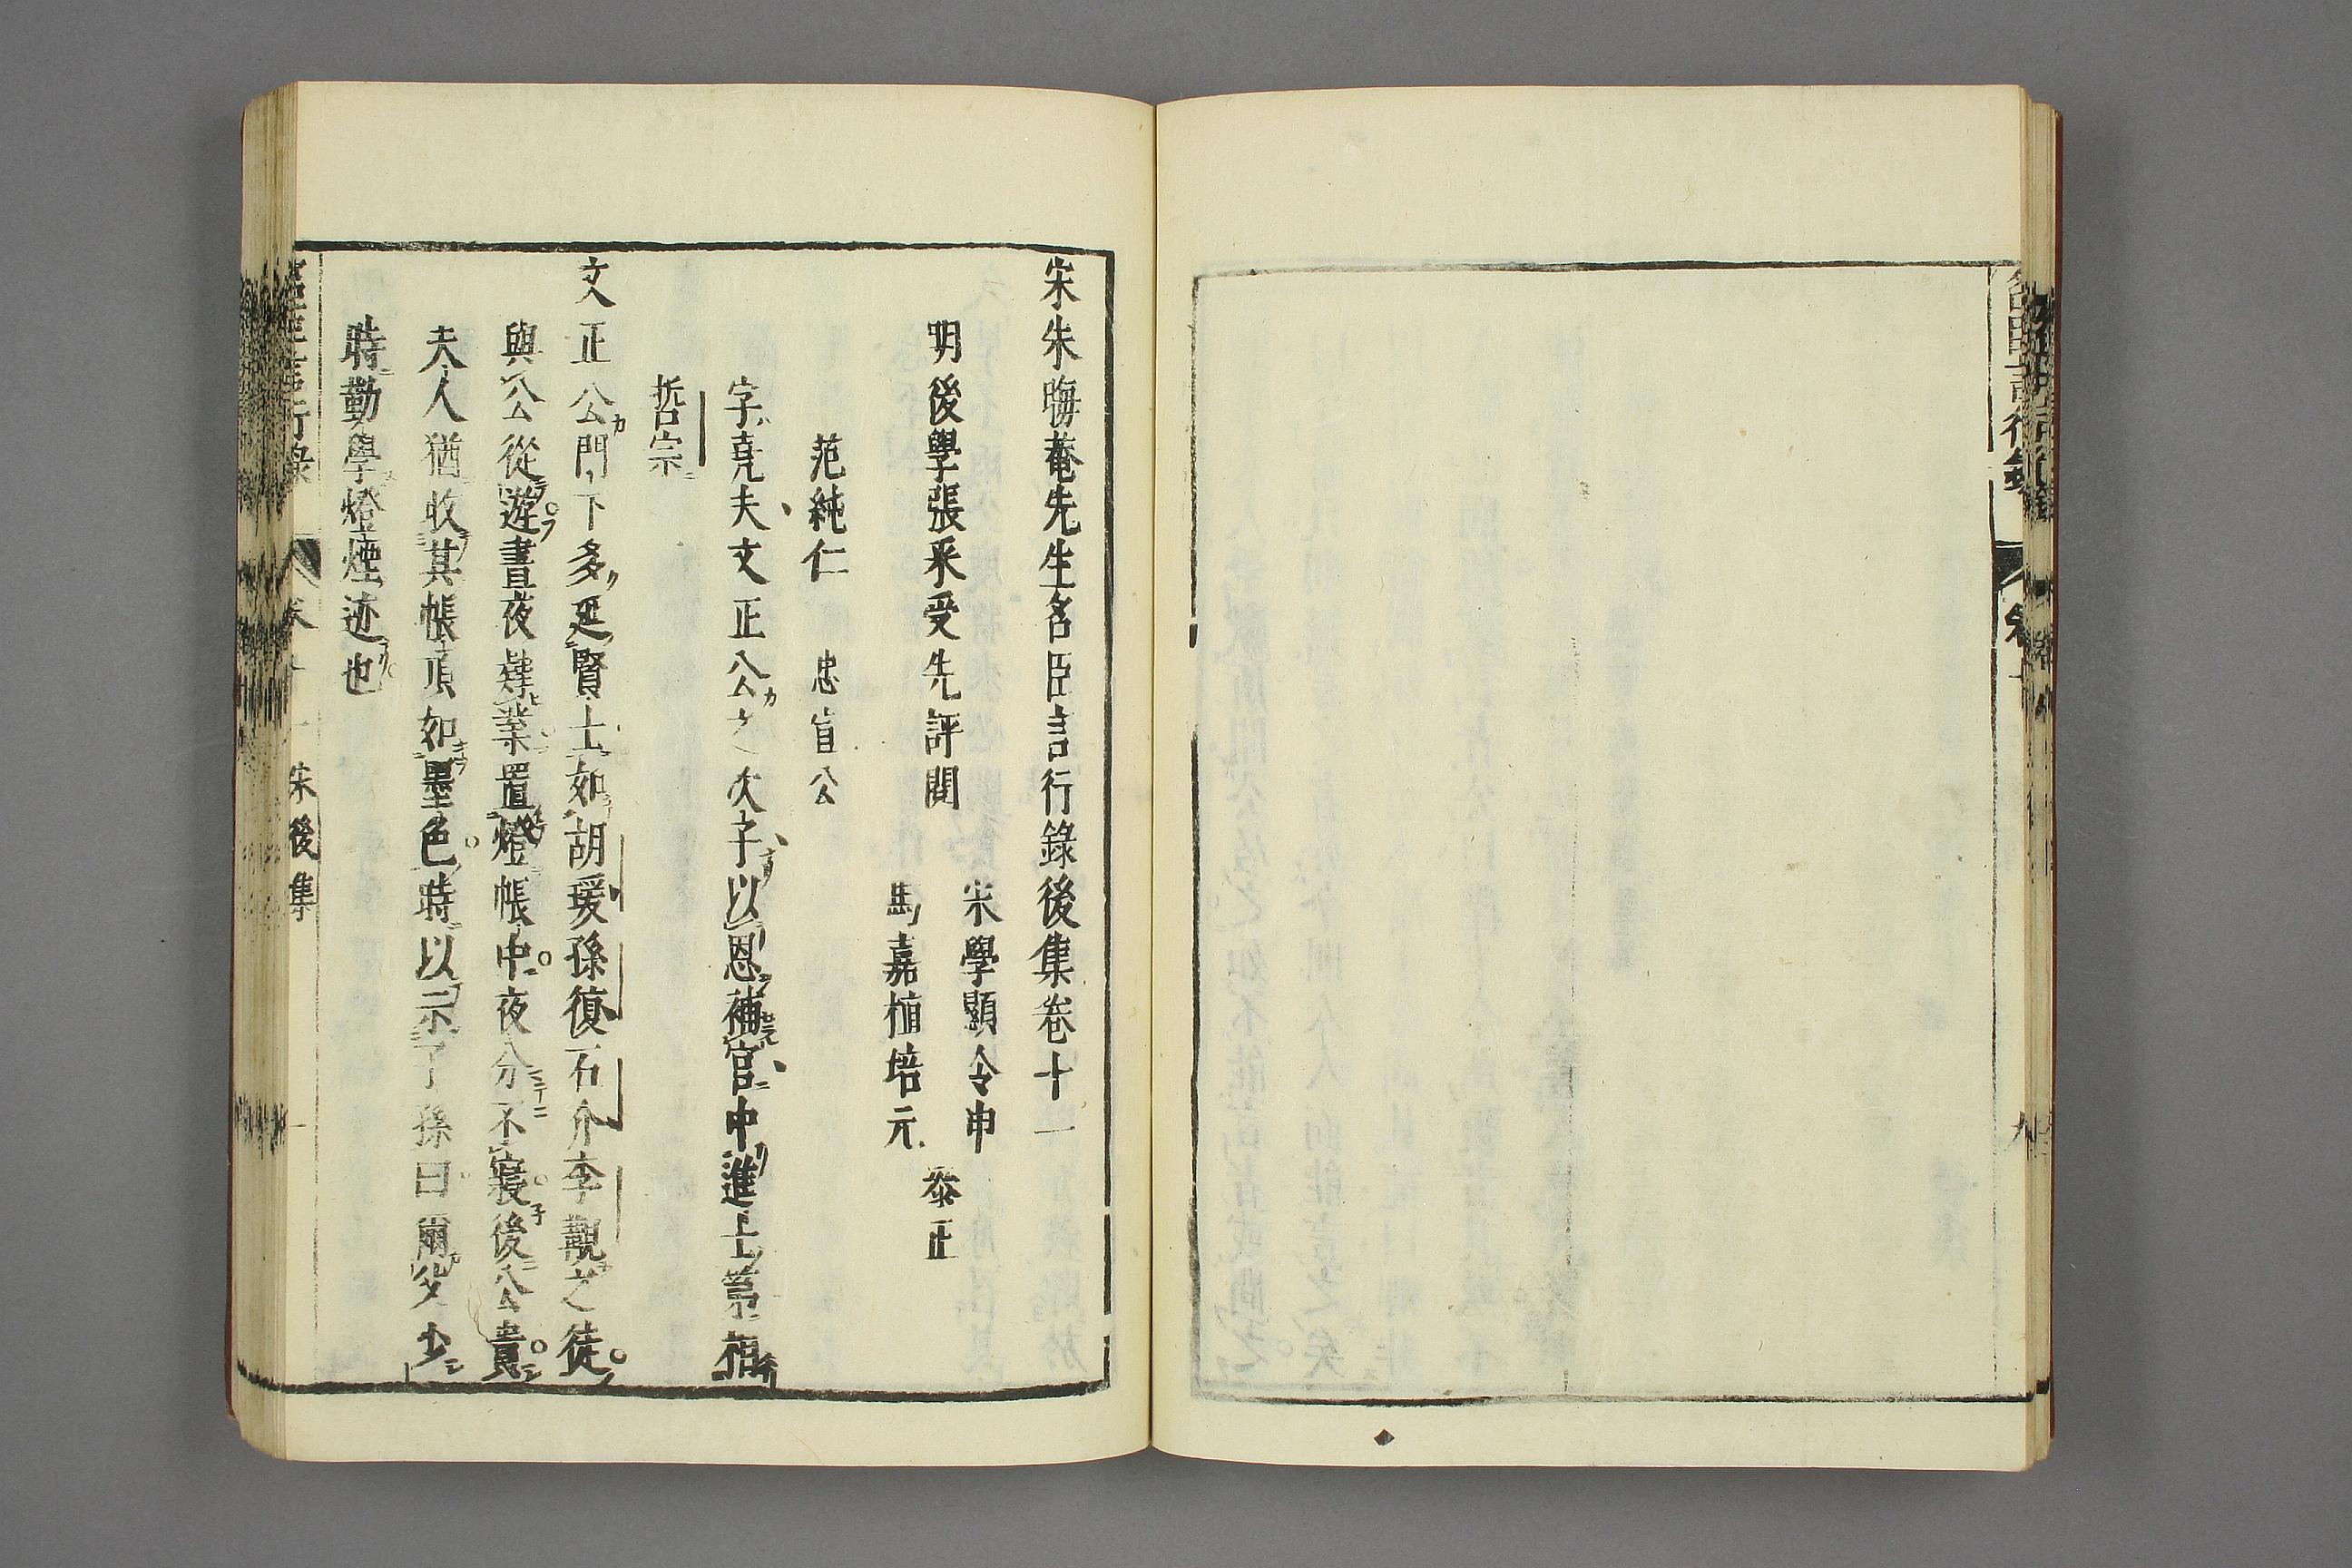 宋朱晦菴先生名臣言行錄後集卷十一
宋學顯令申
明後學張采受先評閱
泰正
馬嘉植培元
范純仁 忠宣公
字堯夫文正公之次子以恩補官中進士第相
哲宗
文正公門下多延賢士如胡瑗孫復石介李覯之徒
與公從遊晝夜肄業置燈帳中夜分不寢後公貴
夫人猶收其帳頂如墨色時以示子孫曰爾父少
時勤學燈煙迹也
卷十一 宋後集